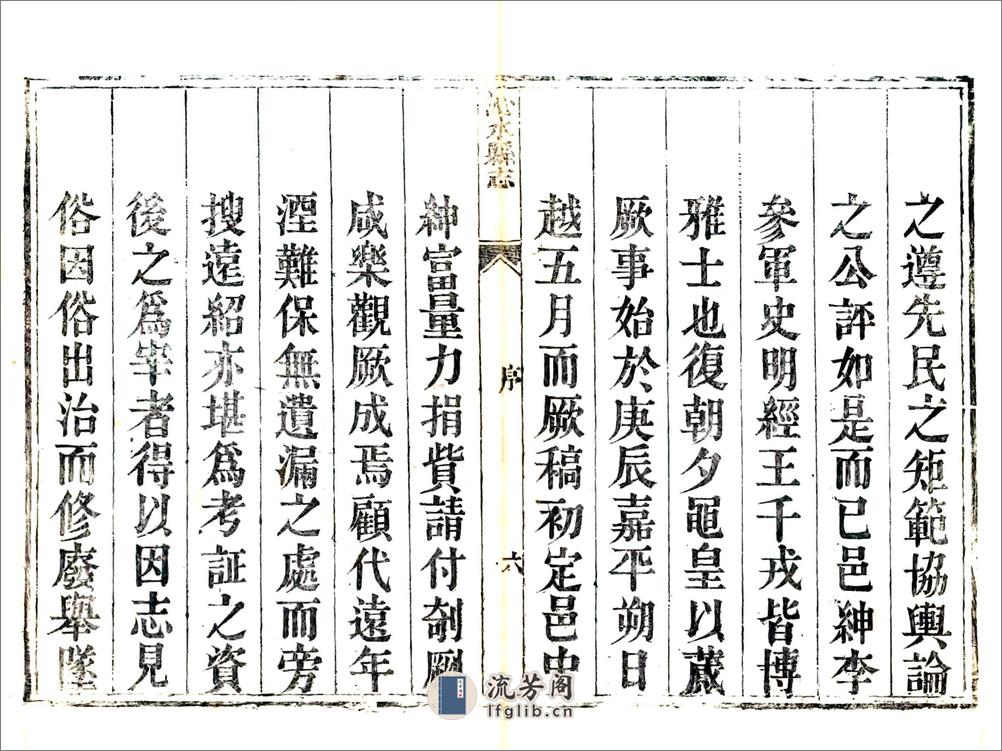 之遵先民之矩範協輿論
之公評如是而已邑紳李
參軍史明經王千戎皆博
雅士也復朝夕黽皇以蕆
厥事始於庚辰嘉平朔日
越五月而厥稿初定邑中
沁水縣志
序
六
紳富量力捐貲請付剞劂
咸樂觀厥成焉顧代遠年
湮難保無遺漏之處而旁
搜遠紹亦堪爲考証之資
後之爲宰者得以因志見
俗因俗出治而修廢舉墜
流芳阁
lfglib.cn